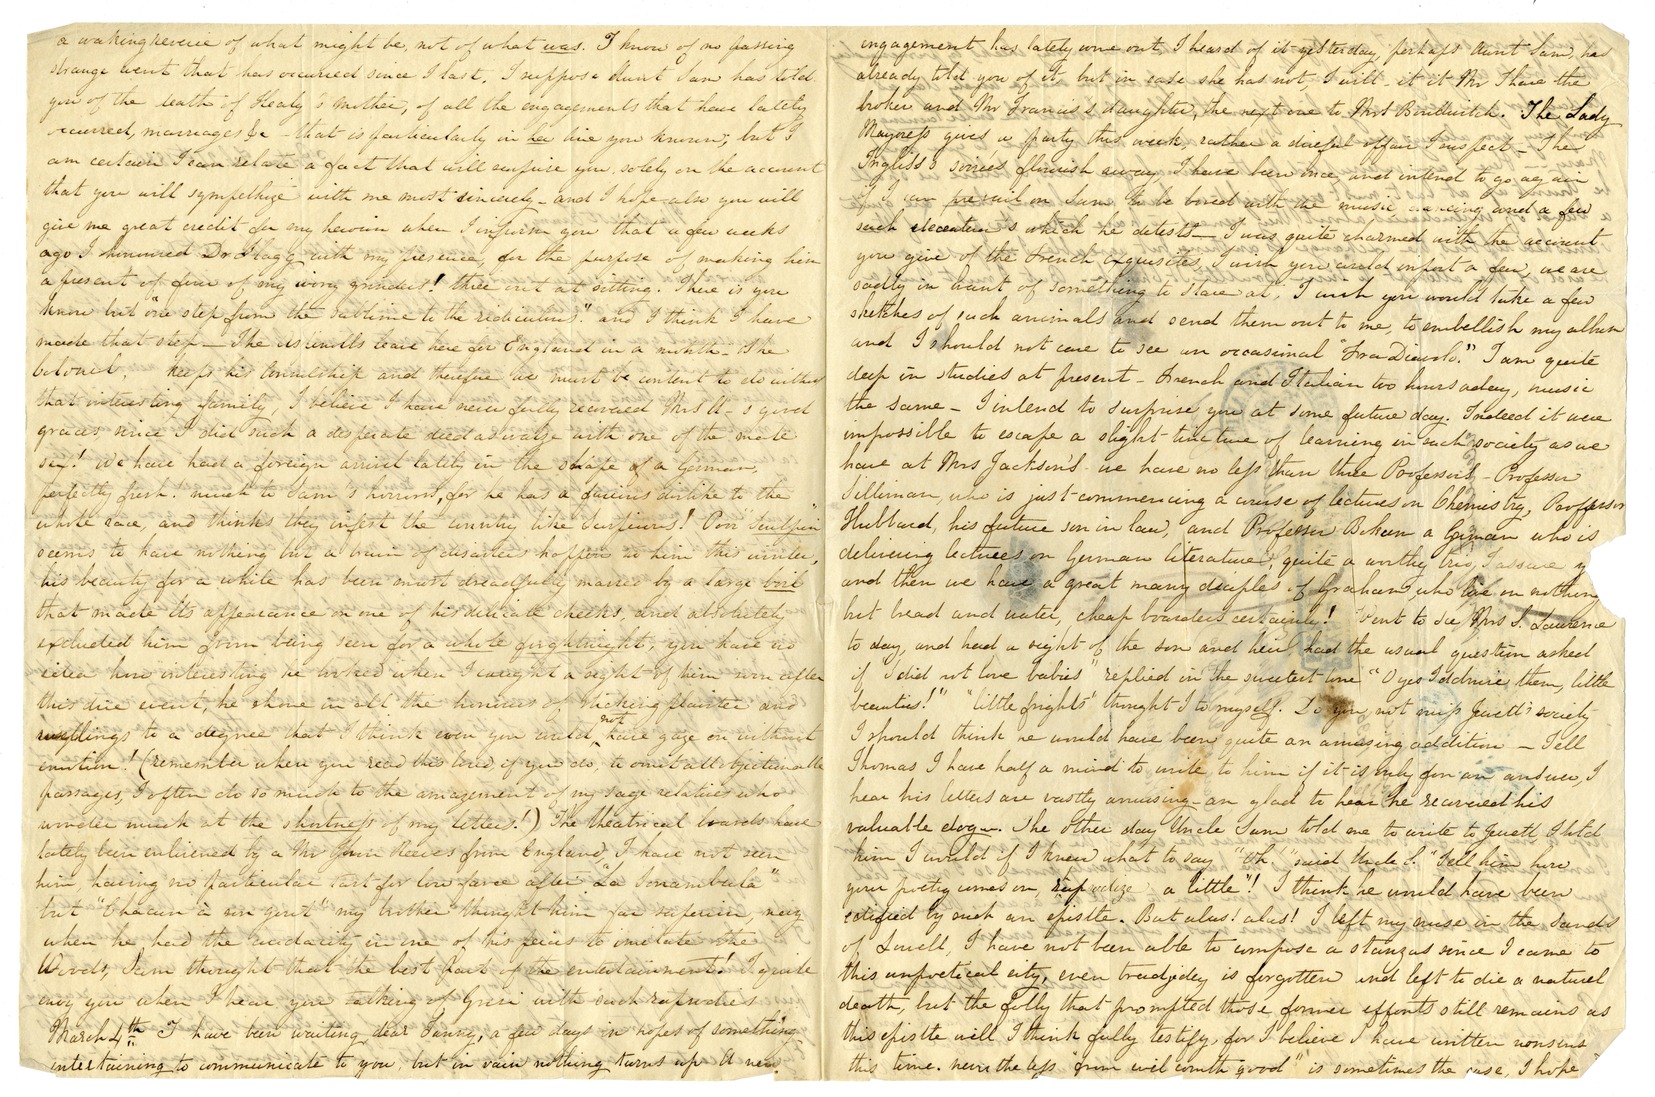 a waking reverie of what might be, not of what was. I know of no passing
strange event that has occurred since I last. I suppose Aunt Sam has told
you of the death of Healy's mother, of all the engagements that have lately
occurred, marriages &c – that is particularly in her line you know, but I
am certain I can relate a fact that will surprise you, solely on the account
that you will sympathize with me most sincerely – and I hope also you will
give me great credit for my heroism when I inform you that a few weeks
ago I honoured Dr Flagg with my presence, for the purpose of making him
a present of four of my ivory grinders! three out at sitting. There is you
know but "one step from the sublime to the ridiculous" and I think I have
made that step – The leave here for England in a month – The
Colonel, keeps his Consulship and therefore we must be content to do without
that interesting family, I believe I have never fully recovered Mrs A–s good
graces since I did such a desperate deed as waltz with one of the male
sex! We have had a foreign arrival lately in the shape of a German,
perfectly fresh! much to Sam's horror, for he has a furious dislike to the
whole race, and thinks they infest the country like Scorpions! Poor "Sculpin"
seems to have nothing but a train of disasters happen to him this winter,
his beauty for a while has been most dreadfully marred by a large boil
that made its appearance on one of his delicate cheeks, and absolutely
excluded him from being seen for a whole forghtnight; you have no
idea how interesting he looked when I caught a sight of him soon after
this dire event, he shone in all the honours of sticking plaister and
to a degree that I think even you could not have gaze on without
emotion! (remember when you read this loud, if you do, to omit all objectionable
passages, I often do so much to the amazement of my sage relatives who
wonder much at the shortness of my letters!) The theatrical boards have
lately been enlivened by a Mr John Reeves from England, I have not seen
him, having no particular tast for low farce after "La Sonambula"
but "Chacun à son gout" my brother thought him far superior, nay
when he had the audacity in one of his peices to imitate the
Woods, Sam thought that the best part of the entertainment! I quite
envy you when I hear you talking of Grisi with such rapsodies
March 4th I have been waiting dear Fanny, a few days in hopes of something
intertaining to communicate to you, but in vain nothing turns up A new
engagement has lately come out, I heard of it yesterday, perhaps Aunt Sam, has
already told you of it, but in case she has not, I will – it it Mr Thare the
broker and Mr Francis's daughter, the next one to Mrs Bowditch. The Lady
Mayoress gives a party this week, rather a direful affair I suspect – The
Inglis's soirees flourish away, I have been once and intend to go again
if I can prevail on Sam to be bored with the music dancing and a few
such which he detests – I was quite charmed with the account
you give of the French exquisites, I wish you would import a few, we are
sadly in want of something to stare at, I wish you would take a few
sketches of such animals and send them out to me, to embellish my album
and I should not care to see an occasional "Fra Diavolo." I am quite
deep in studies at present – French and Italian two hours a day, music
the same – I intend to surprise you at some future day. Indeed it were
impossible to escape a slight tincture of learning in such society as we
have at Mrs Jackson's – we have no less than three Professors – Professor
Silliman, who is just commencing a course of lectures on Chemistry, Proffessor
Hubbard, his future son in law, and Professor Bokum a German who is
delivering lectures on German literature; quite a worthy trio, I assure y
and then we have a great many disciples of Graham who live on nothing
but bread and water, cheap boarders certainly! Went to see Mrs S. Lawrence
to day, and had a sight of the son and heir, had the usual question asked
if I did not love babies" replied in the sweetest tone "O yes I admire them, little
beauties!" "little frights" thought I to myself. Do you not miss Jewett's society
I should think he would have been quite an amusing addition – Tell
Thomas I have half a mind to write to him if it is only for an answer, I
hear his letters are vastly amusing – am glad to hear he recovered his
valuable dog. The other day Uncle Sam told me to write to Jewett I told
him I would if I knew what to say "Oh," said Uncle S. "tell him how
your poetry comes on, rapsodize a little"! I think he would have been
edified by such an epistle. But alas! alas! I left my muse in the sands
of Lowell, I have not been able to compose a stanzas since I came to
this unpoetical city, even tradjedy is forgotten and left to die a natural
death, but the folly that prompted those former efforts still remains as
this epistle will I think fully testify, for I believe I have written nonsens
this time. nevertheless "from evil cometh good" is sometimes the case, I hope